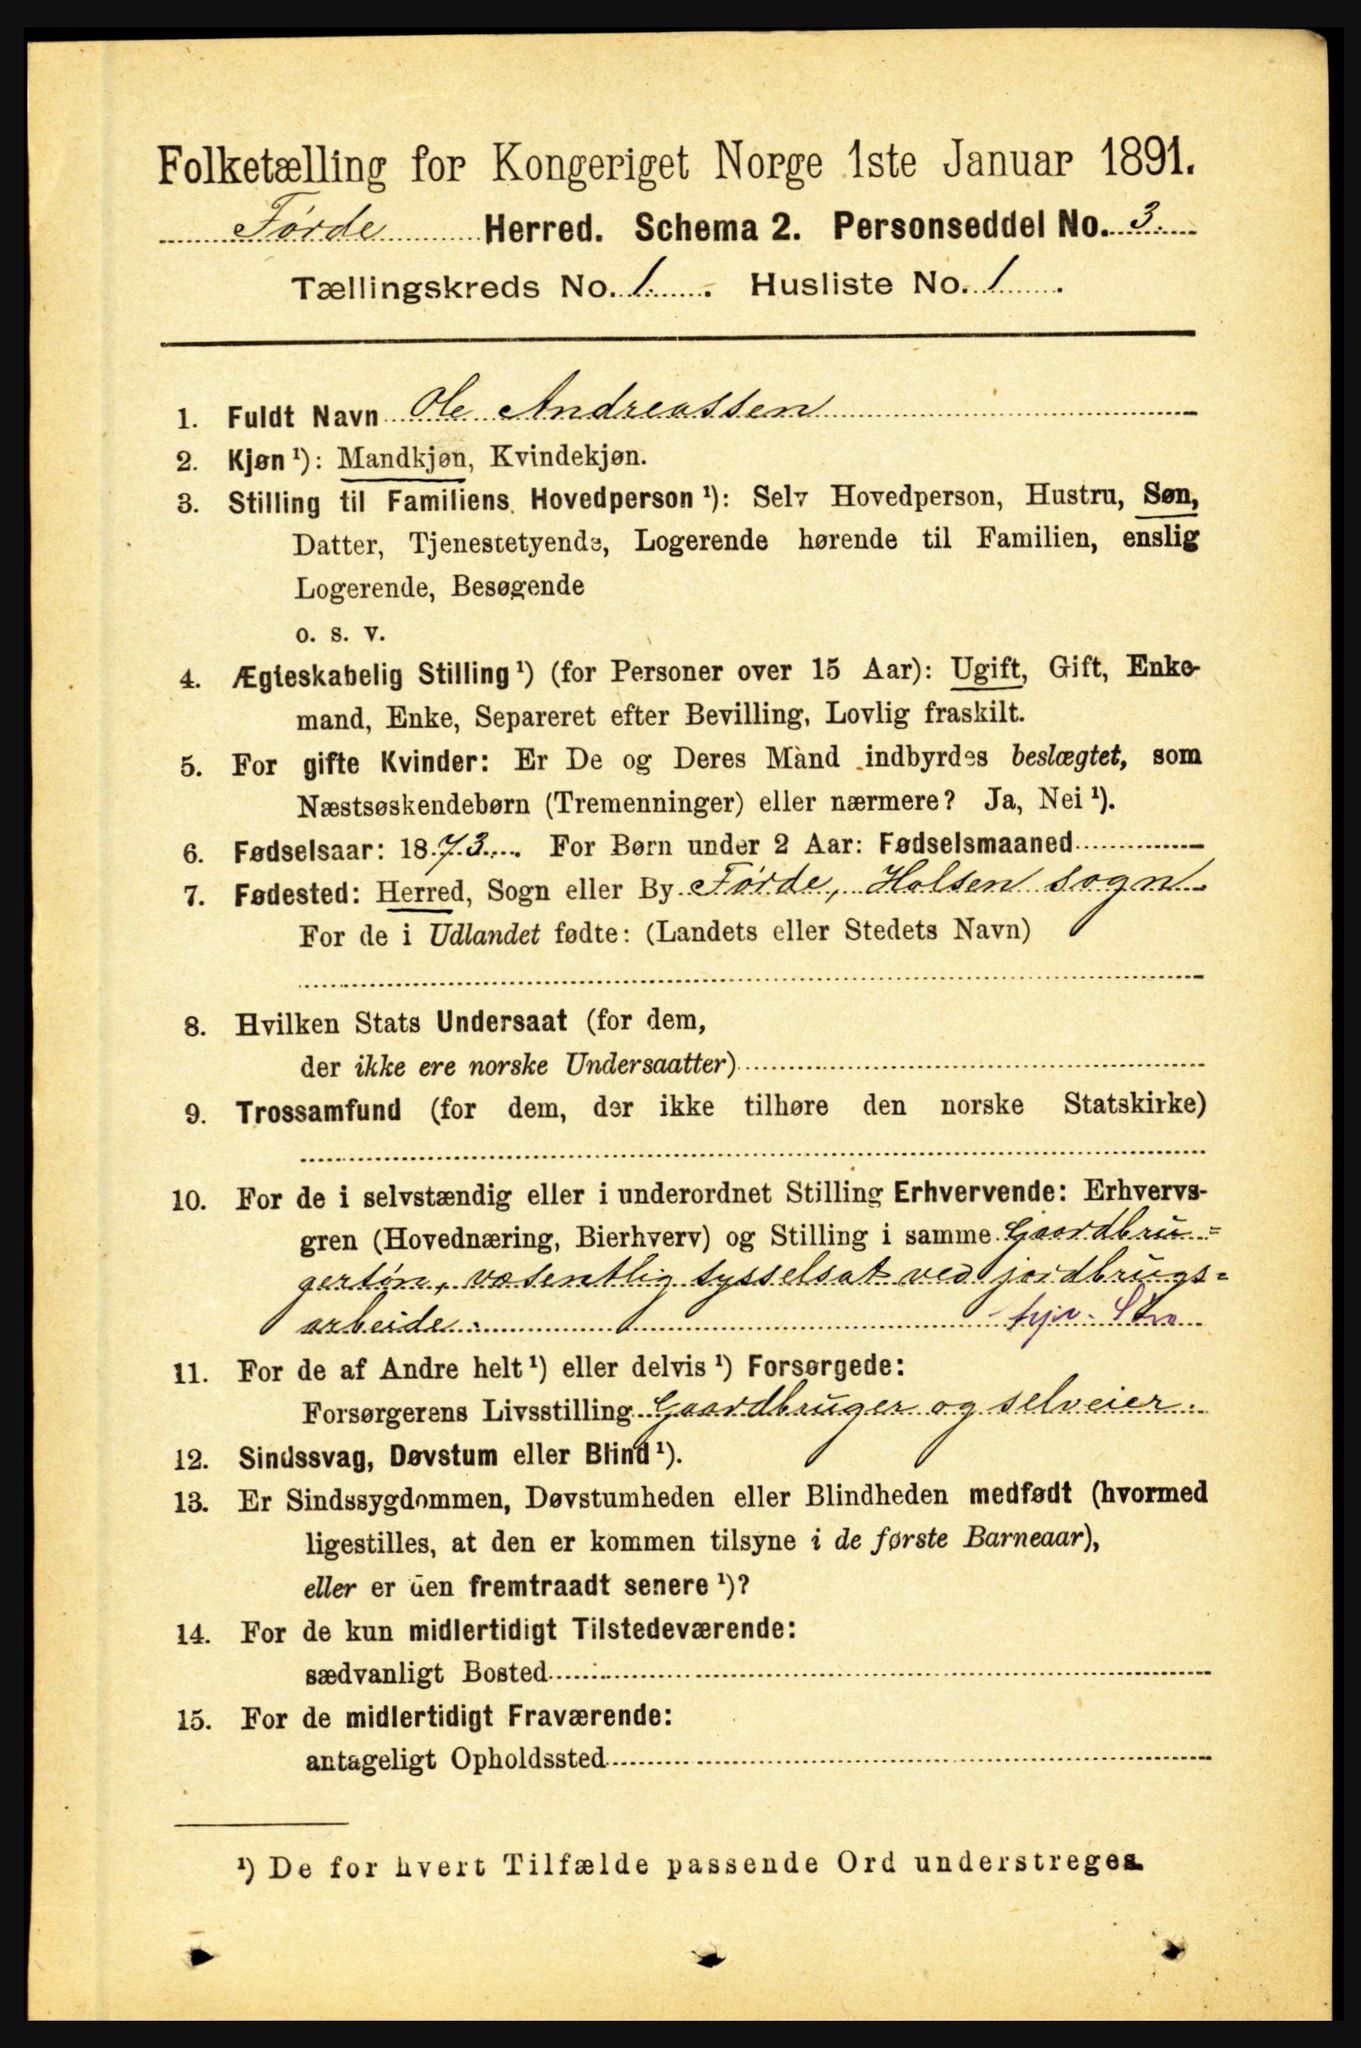 Folketælling for Kongeriget Norge 1ste Januar 1891.
Førde Herred. Schema 2. Personseddel No. 3.
Tællingskreds No. 1. Husliste No. 1.
1. Fuldt Navn Ole Andreassen
2. Kjøn¹): Mandkjøn, Kvindekjøn.
3. Stilling til Familiens Hovedperson¹): Selv Hovedperson, Hustru, Søn,
Datter, Tjenestetyende, Logerende hørende til Familien, enslig
Logerende, Besøgende
o. s. v.
4. Ægteskabelig Stilling¹) (for Personer over 15 Aar): Ugift, Gift, Enke-
mand, Enke, Separeret efter Bevilling, Lovlig fraskilt.
5. For gifte Kvinder: Er De og Deres Mand indbyrdes beslægtet, som
Næstsøskendebørn (Tremenninger) eller nærmere? Ja, Nei¹).
6. Fødselsaar: 1873. For Børn under 2 Aar: Fødselsmaaned
7. Fødested: Herred, Sogn eller By Førde, Holsen sogn
For de i Udlandet fødte: (Landets eller Stedets Navn)
8. Hvilken Stats Undersaat (for dem,
der ikke ere norske Undersaatter)
9. Trossamfund (for dem, der ikke tilhøre den norske Statskirke)
10. For de i selvstændig eller i underordnet Stilling Erhvervende: Erhvervs-
gren (Hovednæring, Bierhverv) og Stilling i samme Gaardbru=
gersøn, væsentlig sysselsat ved jordbrugs=
arbeide.
11. For de af Andre helt¹) eller delvis¹) Forsørgede:
Forsørgerens Livsstilling Gaardbruger og selveier.
12. Sindssvag, Døvstum eller Blind¹).
13. Er Sindssygdommen, Døvstumheden eller Blindheden medfødt (hvormed
ligestilles, at den er kommen tilsyne i de første Barneaar),
eller er den fremtraadt senere¹)?
14. For de kun midlertidigt Tilstedeværende:
sædvanligt Bosted
15. For de midlertidigt Fraværende:
antageligt Opholdssted
¹) De for hvert Tilfælde passende Ord understreges.